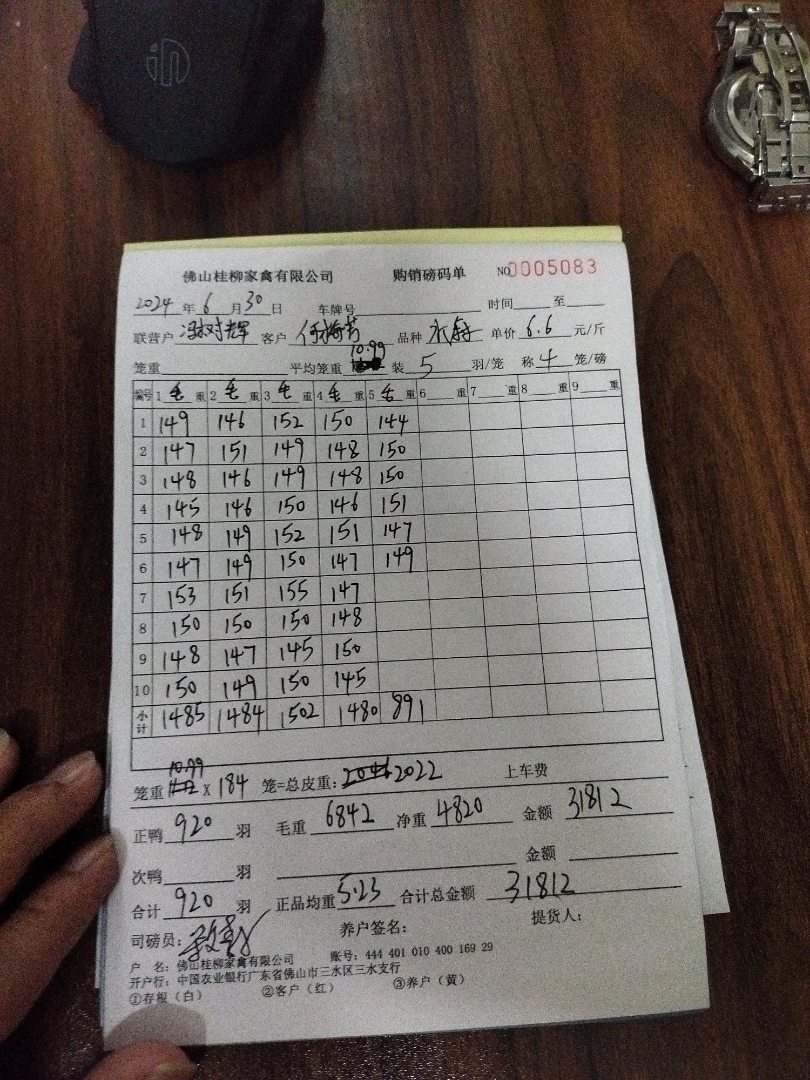 佛山桂柳家禽有限公司 购销磅码单 NO 0005083
2024 年 6 月 30 日 车牌号 时间 至
联营户 辉 客户 何梅芳 品种 单价 6.6 元/斤
笼重 平均笼重 10.99 装 5 羽/笼 称 4 笼/磅
编号 1 毛 重 2 毛 重 3 毛 重 4 毛 重 5 毛 重 6 重 7 重 8 重 9 重
1 149 146 152 150 144
2 147 151 149 148 150
3 148 146 149 148 150
4 145 146 150 146 151
5 148 149 152 151 147
6 147 149 150 147 149
7 153 151 155 147
8 150 150 150 148
9 148 147 145 150
10 150 149 150 145
小计 1485 1484 1502 1480 891
笼重 10.99 X 184 笼=总皮重: 2022 上车费
正鸭 920 羽 毛重 6842 净重 4820 金额 31812
次鸭 羽 金额
合计 920 羽 正品均重 5.23 合计总金额 31812
司磅员: 养户签名: 提货人:
户 名: 佛山桂柳家禽有限公司 账号: 444 401 010 400 169 29
开户行: 中国农业银行广东省佛山市三水区三水支行
①存根（白） ②客户（红） ③养户（黄）